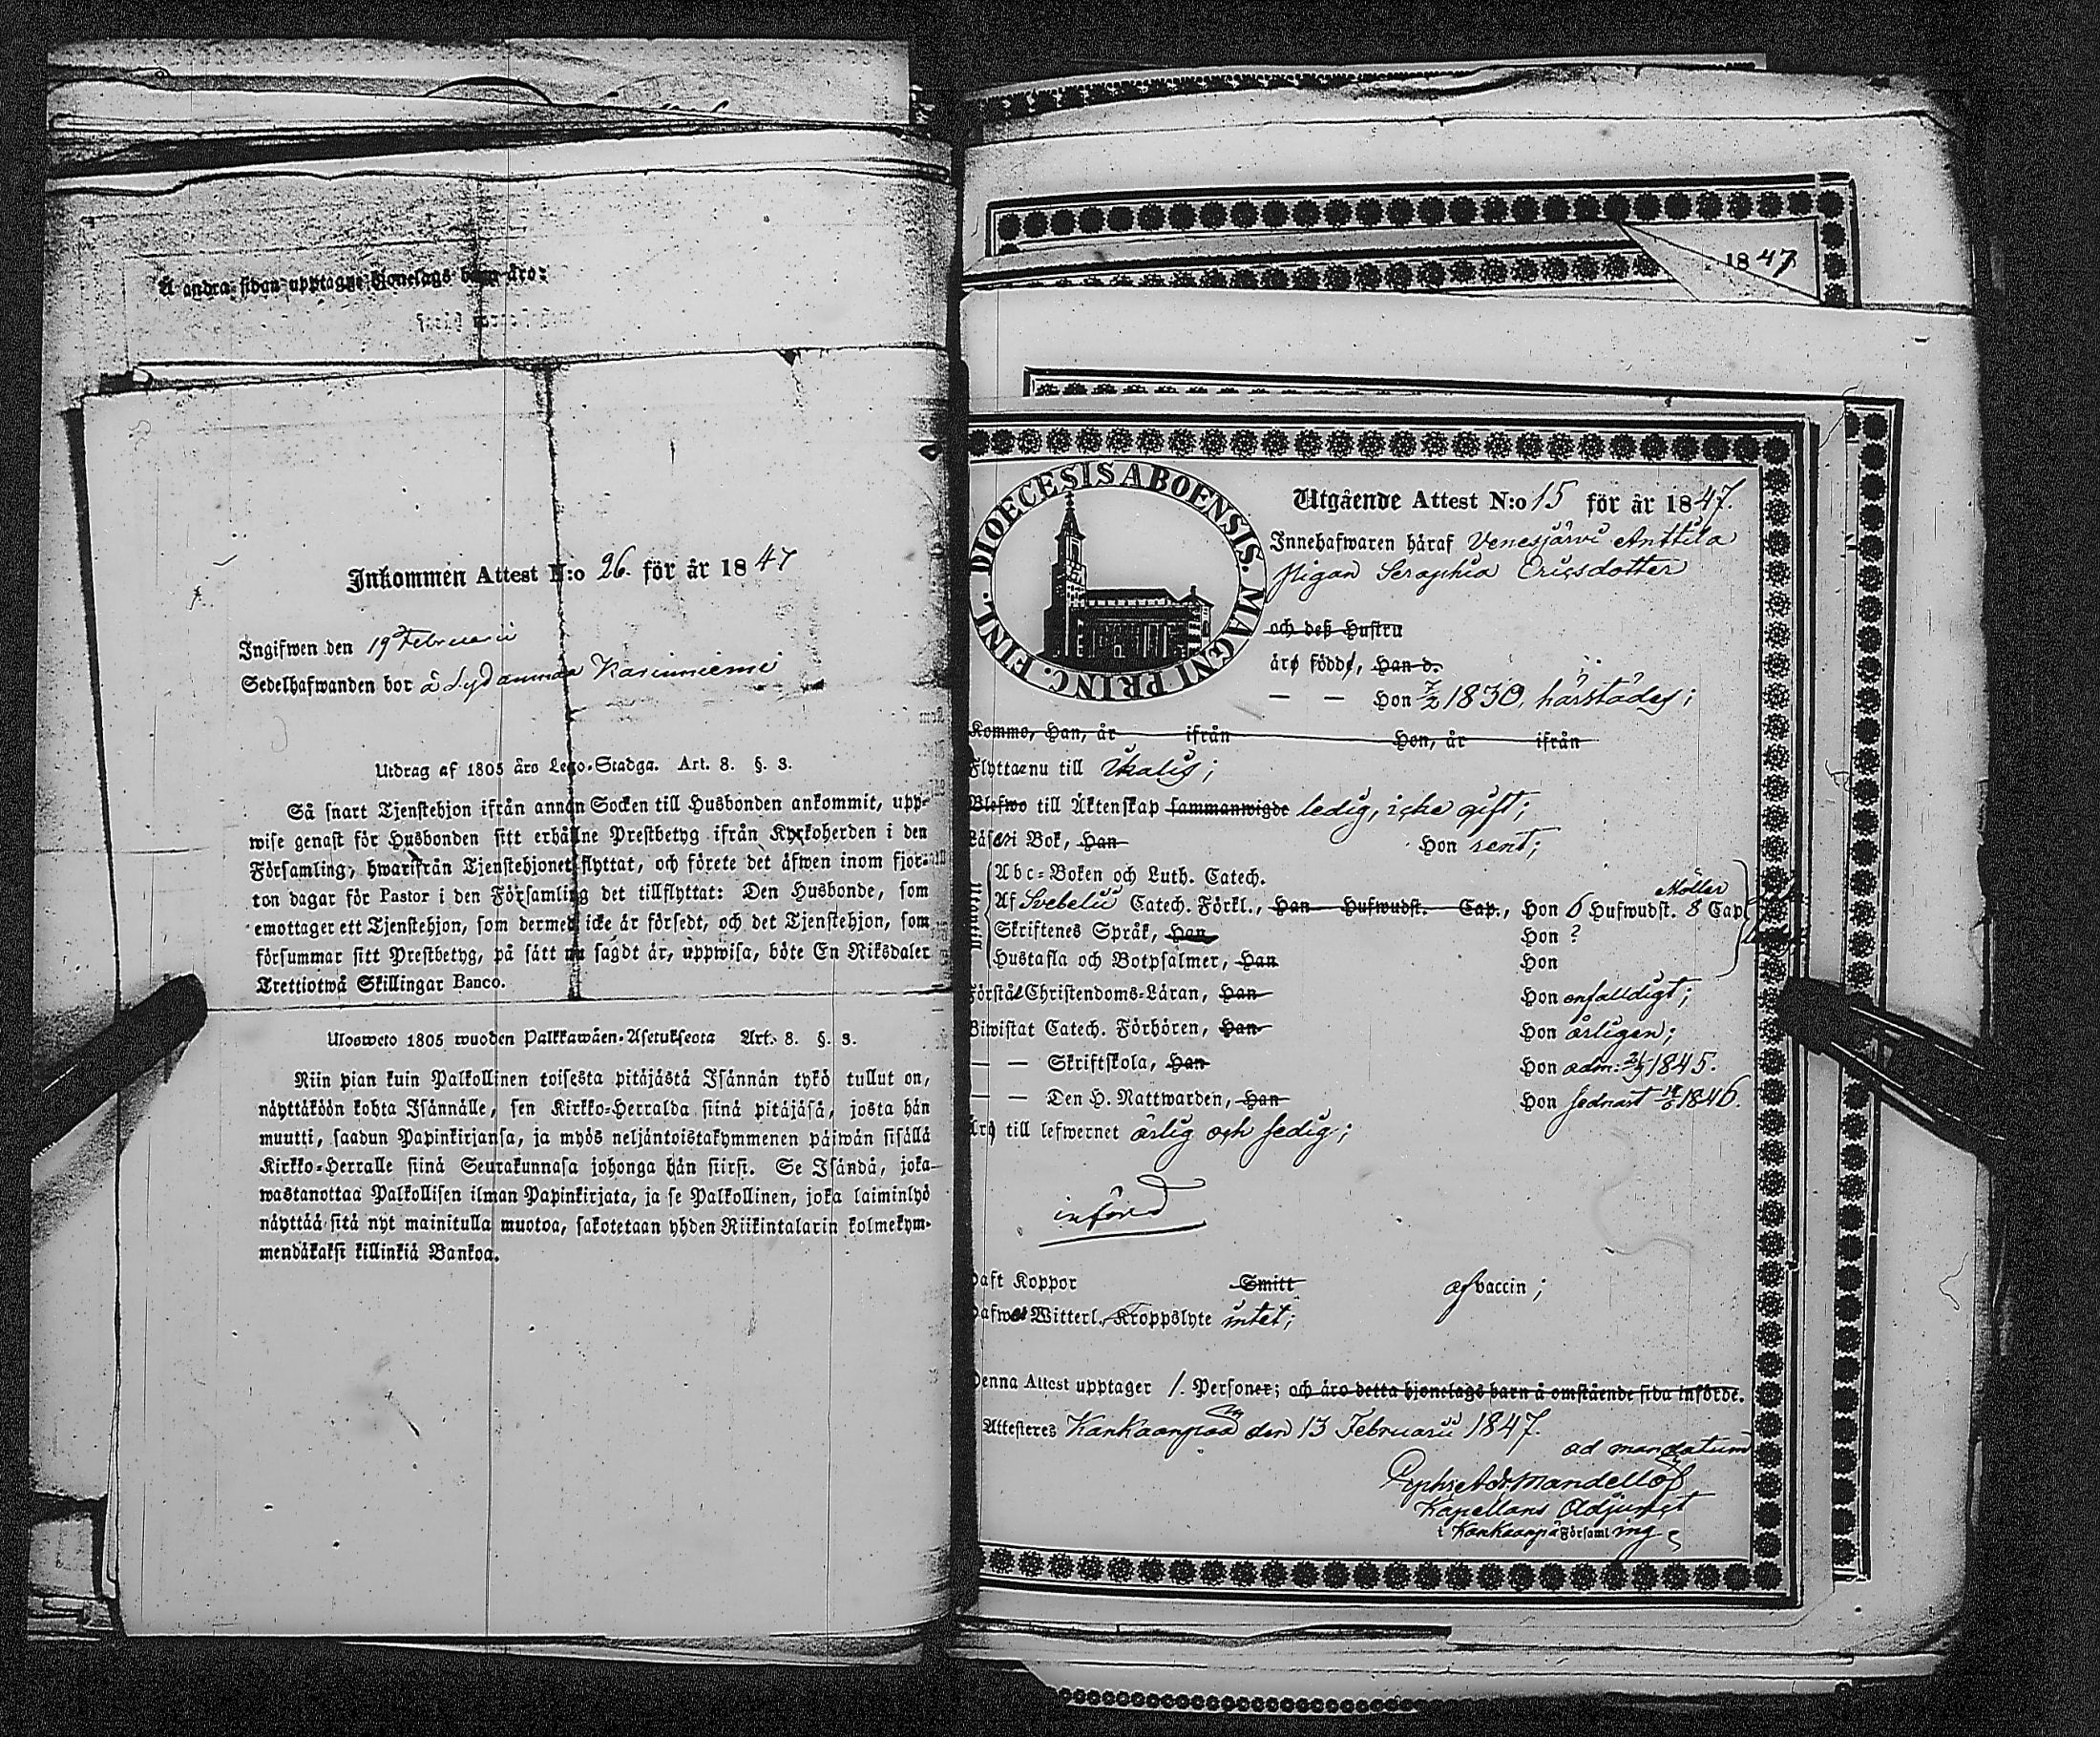 Å andra sidan upptagne hjonelags barn äro:
Inkommen Attest N:o 26. för år 1847
Ingifwen den 19 Februarii
Sedelhafwanden bor å
Utdrag af 1805 års Lego-Stadga. Art. 8. §. 3.
Så snart Tjenstehjon ifrån annan Socken till Husbonden ankommit, upp-
wise genast för Husbonden sitt erhållne Prestbetyg ifrån Kyrkoherden i den
Församling, hwarifrån Tjenstehjonet flyttat, och förete det äfwen inom fjor-
ton dagar för Pastor i den Församling det tillflyttat: Den Husbonde, som
emottager ett Tjenstehjon, som dermed icke är försedt, och det Tjenstehjon, som
försummar sitt Prestbetyg, på sätt nu sagdt är, uppwisa, böte En Riksdaler
Trettiotwå Skillingar Banco.
Uloswето 1805 wuoden Palkkawäen-Asetuksesta Art. 8. §. 3.
Niin pian kuin Palkollinen toisesta pitäjästä Isännän tykö tullut on,
näyttäköön kohta Isännälle, sen Kirkko-Herralda siinä pitäjäsä, josta hän
muutti, saadun Papinkirjansa, ja myös neljäntoistakymmenen päiwän sisällä
Kirkko-Herralle siinä Seurakunnasa johonga hän siirsi. Se Isändä, joka
wastanottaa Palkollisen ilman Papinkirjata, ja se Palkollinen, joka laiminlyö
näyttää sitä nyt mainitulla muotoa, sakotetaan yhden Riikintalarin kolmekym-
mendäkaksi killinkiä Bankoa.
1847
DIOECESIS ABOENSIS. MAGNI PRINC. FINL.
Utgående Attest N:o 15 för år 1847.
Innehafwaren häraf Venesjärvi Anttila
Pigan Seraphia Ericsdotter
och dess Hustru
äro födde, Han d.
— — Hon 7/2 1830. härstädes;
Komme, Han, år ifrån Hon, år ifrån
Flytta nu till Ikalis;
Blefwo till Äktenskap sammanwigde ledig, icke gift;
Läser i Bok, Han Hon rent;
Abc-Boken och Luth. Catech.
Af Svebelii Catech. Förkl., Han Hufwudst. Cap., Hon 6 Hufwudst. 8 Cap
Möller
Skriftenes Språk, Han Hon ?
Hustafla och Botpsalmer, Han Hon
Förstå Christendoms-Läran, Han Hon enfalldigt;
Biwistat Catech. Förhören, Han Hon årligen;
— — Skriftskola, Han Hon adm: 1845.
— — Den H. Nattwarden, Han Hon sednast 1846.
Äro till lefwernet ärlig och sedig;
införd
Haft Koppor Smitt af vaccin;
Hafwa Witterl. Kroppslyte intet;
Denna Attest upptager 1. Personer; och äro detta hjonelags barn å omstående sida införde.
Attesteres Kankaanpää den 13 Februarii 1847.
ad mandatum
Mandellöf
Kapellans Adjunct
i Kankaanpää Församling